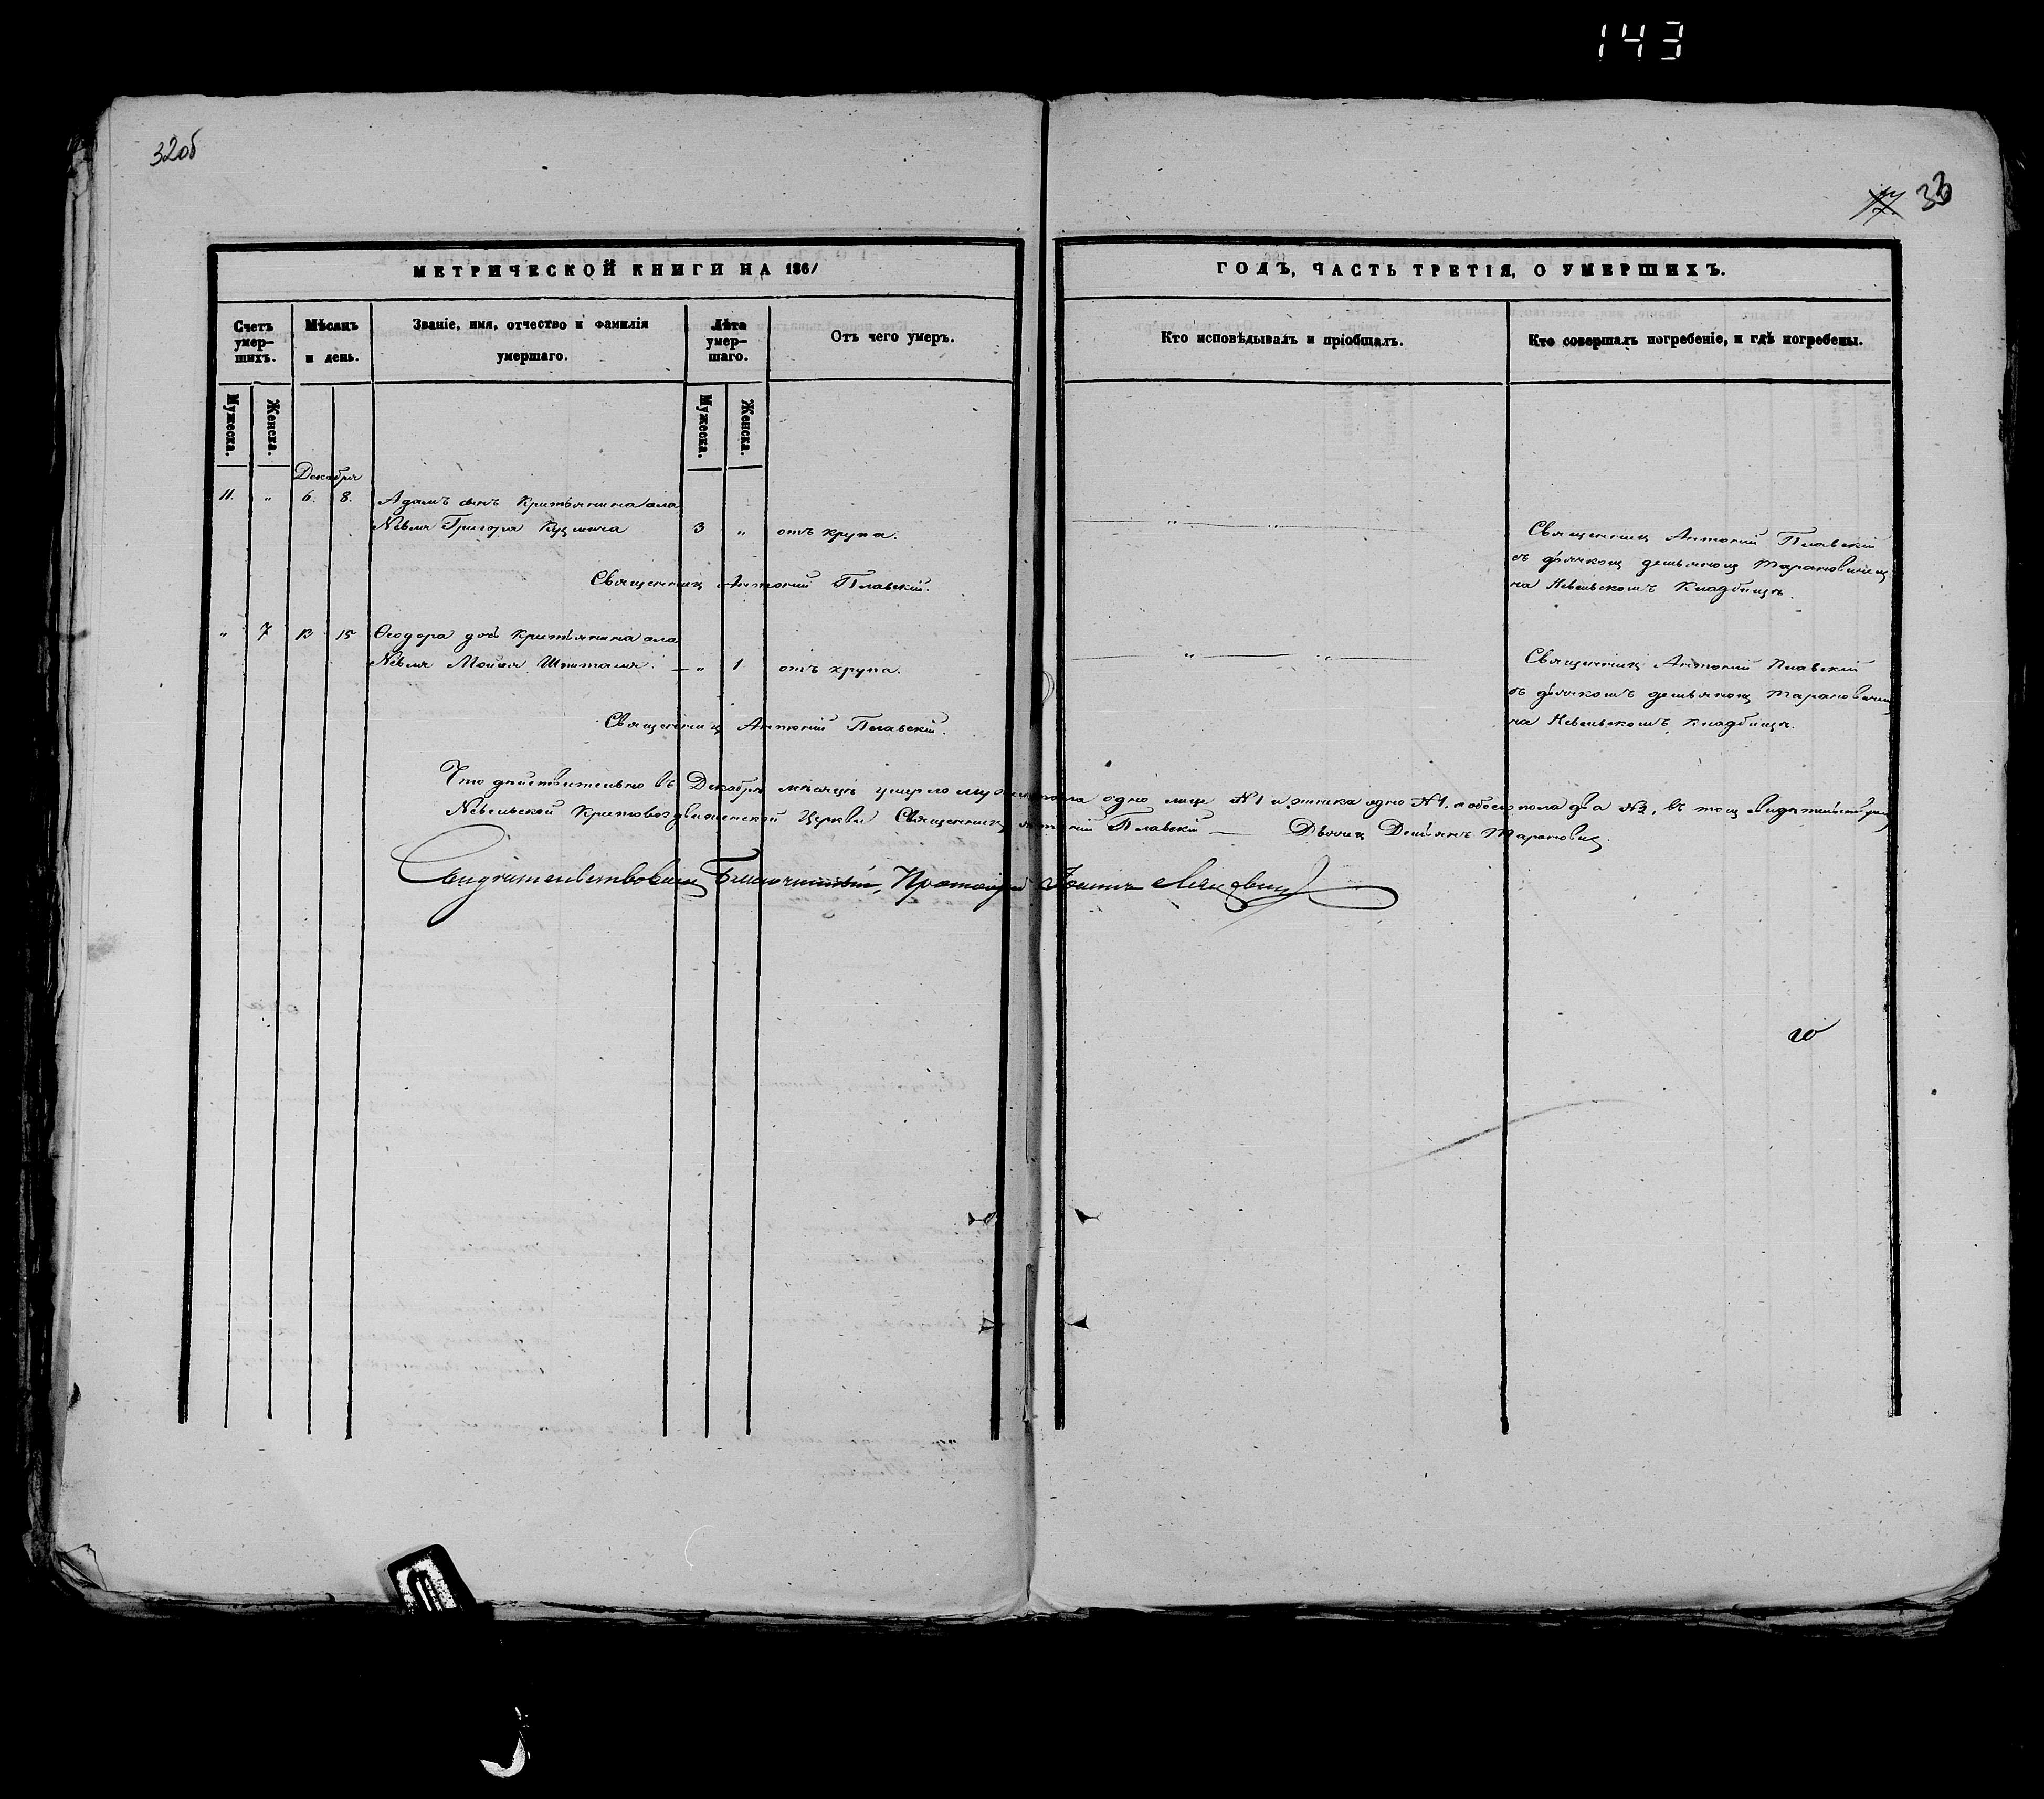 143
32об
17 33
МЕТРИЧЕСКОЙ КНИГИ НА 1861
ГОДЪ, ЧАСТЬ ТРЕТІЯ, О УМЕРШИХЪ.
Счетъ умер-
шихъ.
Мѣсяцъ
и день.
Званіе, имя, отчество и фамилія
умершаго.
Лѣта
умер-
шаго.
Отъ чего умеръ.
Кто исповѣдывалъ и пріобщалъ.
Кто совершалъ погребеніе, и гдѣ погребены.
Мужеска.
Женска.
Мужеска.
Женска.
Декабря
11. " 6. 8. Адамъ сынъ Крестьянина села
Невля Григора Кузмича 3 " отъ крупа. " "
Священникъ Антоній Плавскій
съ дьячкомъ Демьяномъ Тарановичемъ
на Невельскомъ Кладбищѣ.
Священникъ Антоній Плавскій.
" 7 13 15 Ѳеодора дочь Крестьянина села
Невля Моисея Шпиталя. — " 1 отъ крупа. " "
Священникъ Антоній Плавскій
съ дьячкомъ Демьяномъ Тарановичемъ
на Невельскомъ Кладбищѣ.
Священникъ Антоній Плавскій.
Что дѣйствительно въ Декабрѣ мѣсяцѣ умерло мужеска пола одно лице №1 и женска одно №1. а обоего пола два №2, въ томъ свидѣтельствуемъ
Невельской Крестовоздвиженской Церкви Священникъ Антоній Плавскій — Дьячекъ Демьянъ Тарановичъ.
Свидѣтельствовалъ Благочинный, Протоіерей Іоаннъ